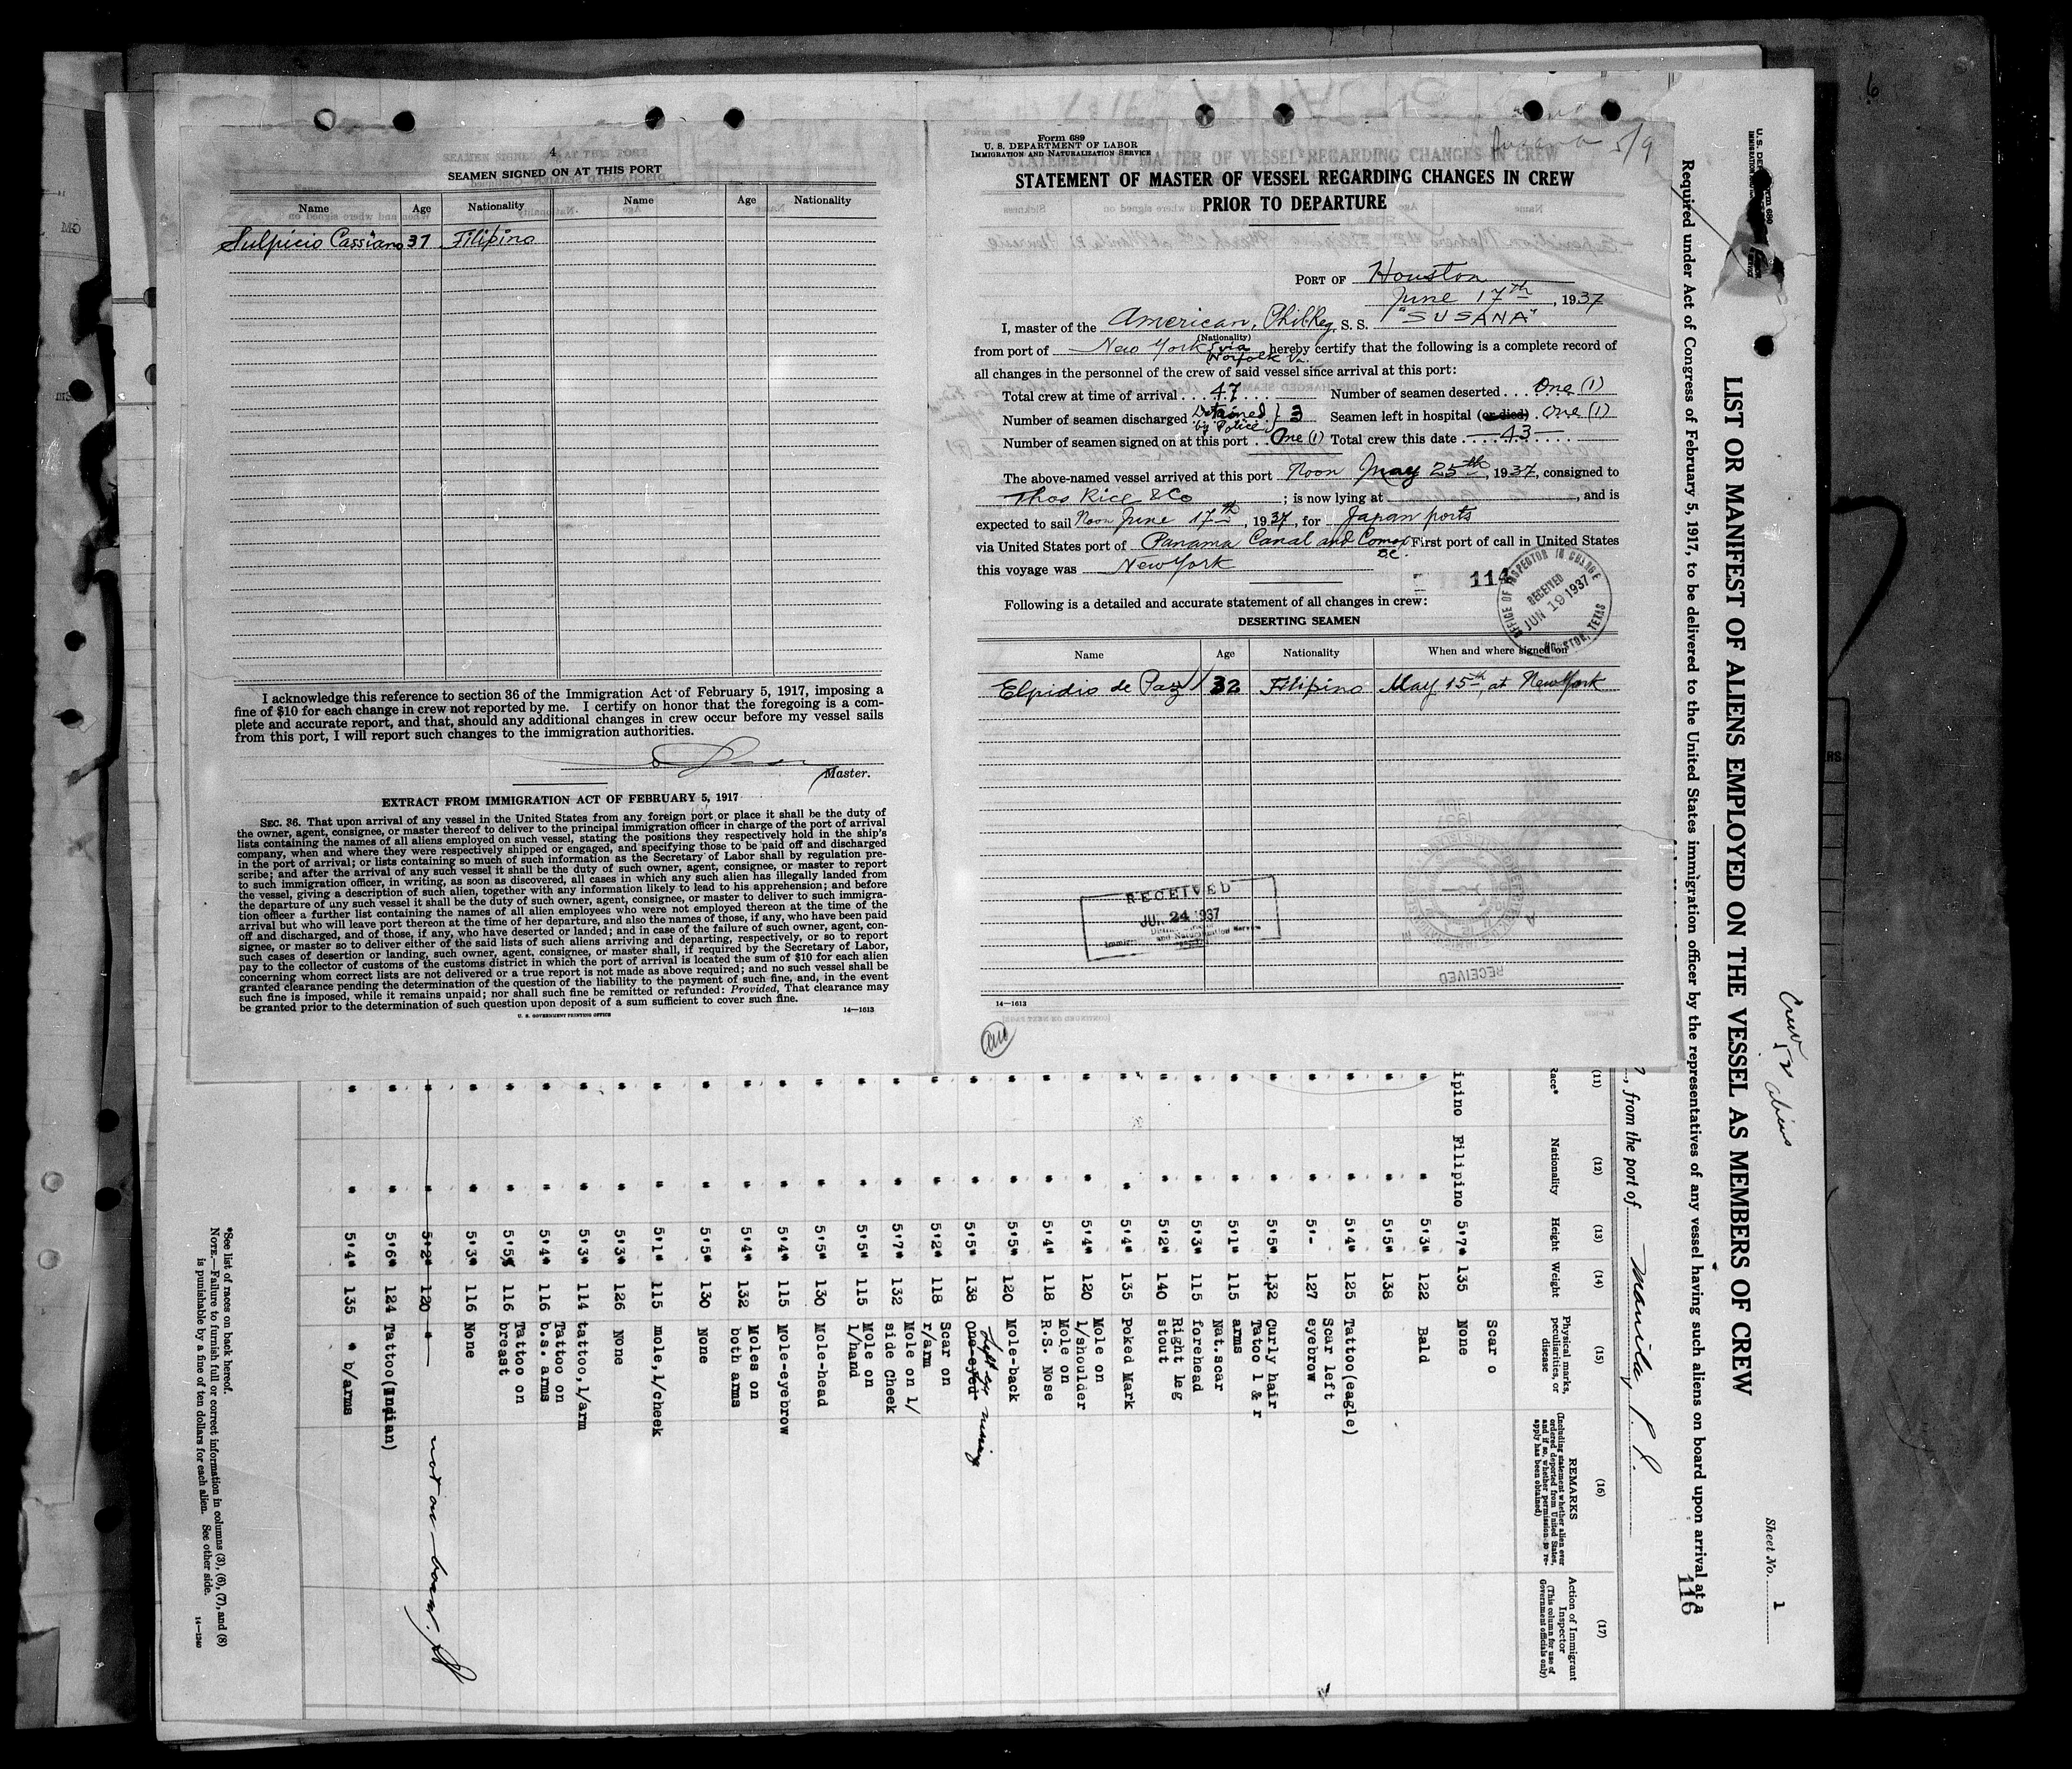 4
SEAMEN SIGNED ON AT THIS PORT
Name Age Nationality Name Age Nationality
Sulpicio Cassiano 37 Filipino
I acknowledge this reference to section 36 of the Immigration Act of February 5, 1917, imposing a
fine of $10 for each change in crew not reported by me. I certify on honor that the foregoing is a com-
plete and accurate report, and that, should any additional changes in crew occur before my vessel sails
from this port, I will report such changes to the immigration authorities.
Master.
EXTRACT FROM IMMIGRATION ACT OF FEBRUARY 5, 1917
SEC. 36. That upon arrival of any vessel in the United States from any foreign port or place it shall be the duty of
the owner, agent, consignee, or master thereof to deliver to the principal immigration officer in charge of the port of arrival
lists containing the names of all aliens employed on such vessel, stating the positions they respectively hold in the ship's
company, when and where they were respectively shipped or engaged, and specifying those to be paid off and discharged
in the port of arrival; or lists containing so much of such information as the Secretary of Labor shall by regulation pre-
scribe; and after the arrival of any such vessel it shall be the duty of such owner, agent, consignee, or master to report
to such immigration officer, in writing, as soon as discovered, all cases in which any such alien has illegally landed from
the vessel, giving a description of such alien, together with any information likely to lead to his apprehension; and before
the departure of any such vessel it shall be the duty of such owner, agent, consignee, or master to deliver to such immigra-
tion officer a further list containing the names of all alien employees who were not employed thereon at the time of the
arrival but who will leave port thereon at the time of her departure, and also the names of those, if any, who have been paid
off and discharged, and of those, if any, who have deserted or landed; and in case of the failure of such owner, agent, con-
signee, or master so to deliver either of the said lists of such aliens arriving and departing, respectively, or so to report
such cases of desertion or landing, such owner, agent, consignee, or master shall, if required by the Secretary of Labor,
pay to the collector of customs of the customs district in which the port of arrival is located the sum of $10 for each alien
concerning whom correct lists are not delivered or a true report is not made as above required; and no such vessel shall be
granted clearance pending the determination of the question of the liability to the payment of such fine, and, in the event
such fine is imposed, while it remains unpaid; nor shall such fine be remitted or refunded: Provided, That clearance may
be granted prior to the determination of such question upon deposit of a sum sufficient to cover such fine.
U. S. GOVERNMENT PRINTING OFFICE 14—1613
Form 689
U. S. DEPARTMENT OF LABOR
IMMIGRATION AND NATURALIZATION SERVICE
5/9
STATEMENT OF MASTER OF VESSEL REGARDING CHANGES IN CREW
PRIOR TO DEPARTURE
PORT OF Houston
June 17th, 1937
I, master of the American, Phil. Reg. S. S. "SUSANA"
(Nationality)
from port of New York via Norfolk Va. hereby certify that the following is a complete record of
all changes in the personnel of the crew of said vessel since arrival at this port:
Total crew at time of arrival 47 Number of seamen deserted One (1)
Number of seamen discharged Detained by Police } 3 Seamen left in hospital (or died) One (1)
Number of seamen signed on at this port One (1) Total crew this date 43
The above-named vessel arrived at this port Noon May 25th, 1937, consigned to
Thos Rice & Co ; is now lying at , and is
expected to sail Noon June 17th, 1937, for Japan ports
via United States port of Panama Canal and Comox BC. First port of call in United States
this voyage was New York
114
OFFICE OF INSPECTOR IN CHARGE
RECEIVED
JUN 19 1937
HOUSTON, TEXAS
Following is a detailed and accurate statement of all changes in crew:
DESERTING SEAMEN
Name Age Nationality When and where signed on
Elpidio de Paz 32 Filipino May 15th, at New York
RECEIVED
24 1937
Immigration and Naturalization Service
RECEIVED
14—1613
U. S. DE
IMMIGRATION
Form 689
SERVICE
6
LIST OR MANIFEST OF ALIENS EMPLOYED ON THE VESSEL AS MEMBERS OF CREW
Crew 52 aliens
Sheet No. 1
Required under Act of Congress of February 5, 1917, to be delivered to the United States immigration officer by the representatives of any vessel having such aliens on board upon arrival at a
116
, from the port of Manila, P. I.
(11) (12) (13) (14) (15) (16) (17)
Race*
Nationality
Height
Weight
Physical marks, peculiarities, or disease
REMARKS
(Including statement whether alien ever ordered deported from United States, and if so, whether permission to reapply has been obtained)
Action of Immigrant Inspector
(This column for use of Government officials only)
Scar o
ipino Filipino 5'7" 135 None
" " 5'3" 122 Bald
" " 5'5" 138
" " 5'4" 125 Tattoo(eagle)
" " 5'- 127 Scar left eyebrow
" " 5'5" 132 Curly hair
" " 5'1" 115 Tatoo l & r arms
" " 5'3" 115 Nat.scar forehead
" " 5'2" 140 Right leg stout
" " 5'4" 135 Poked Mark
" " 5'4" 120 Mole on l/shoulder
" " 5'4" 118 Mole on R.S. Nose
" " 5'5" 120 Mole-back
" " 5'5" 138 One eyed Left eye missing
" " 5'2" 118 Scar on r/arm
" " 5'7" 132 Mole on l/ side Cheek
" " 5'5" 115 Mole on l/hand
" " 5'5" 130 Mole-head
" " 5'4" 115 Mole-eyebrow
" " 5'4" 132 Moles on both arms
" " 5'5" 130 None
" " 5'1" 115 mole,l/cheek
" " 5'3" 126 None
" " 5'3" 114 tattoo,l/arm
" " 5'4" 116 Tattoo on b.s. arms
" " 5'5" 116 Tattoo on breast
" " 5'3" 116 None
" " 5'2" 120 " not on board.
" " 5'6" 124 Tattoo(Indian)
" " 5'4" 135 " b/arms
*See list of races on back hereof.
NOTE.—Failure to furnish full or correct information in columns (3), (6), (7), and (8)
is punishable by a fine of ten dollars for each alien. See other side.
14—1240